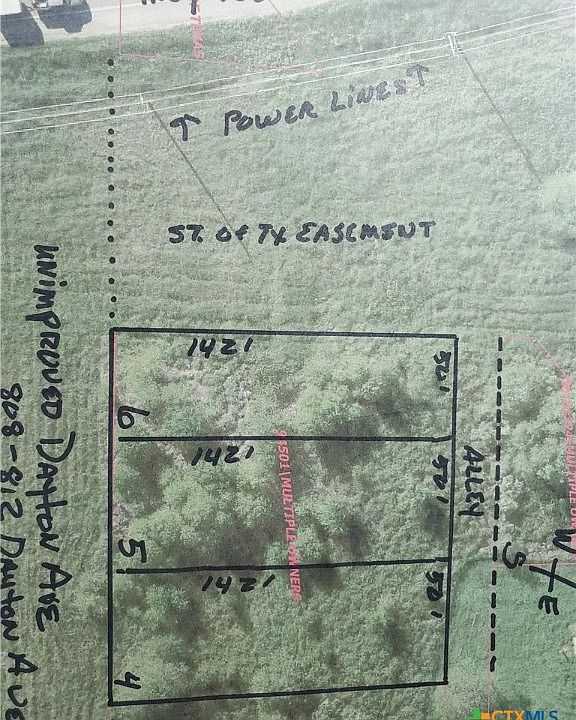 ↑ POWER LINES ↑
ST. OF TX EASEMENT
142'
50'
6
142'
50'
5
142'
50'
4
ALLEY
UNIMPROVED DAYTON AVE
808-812 DAYTON AVE
W
S
E
CTXMLS